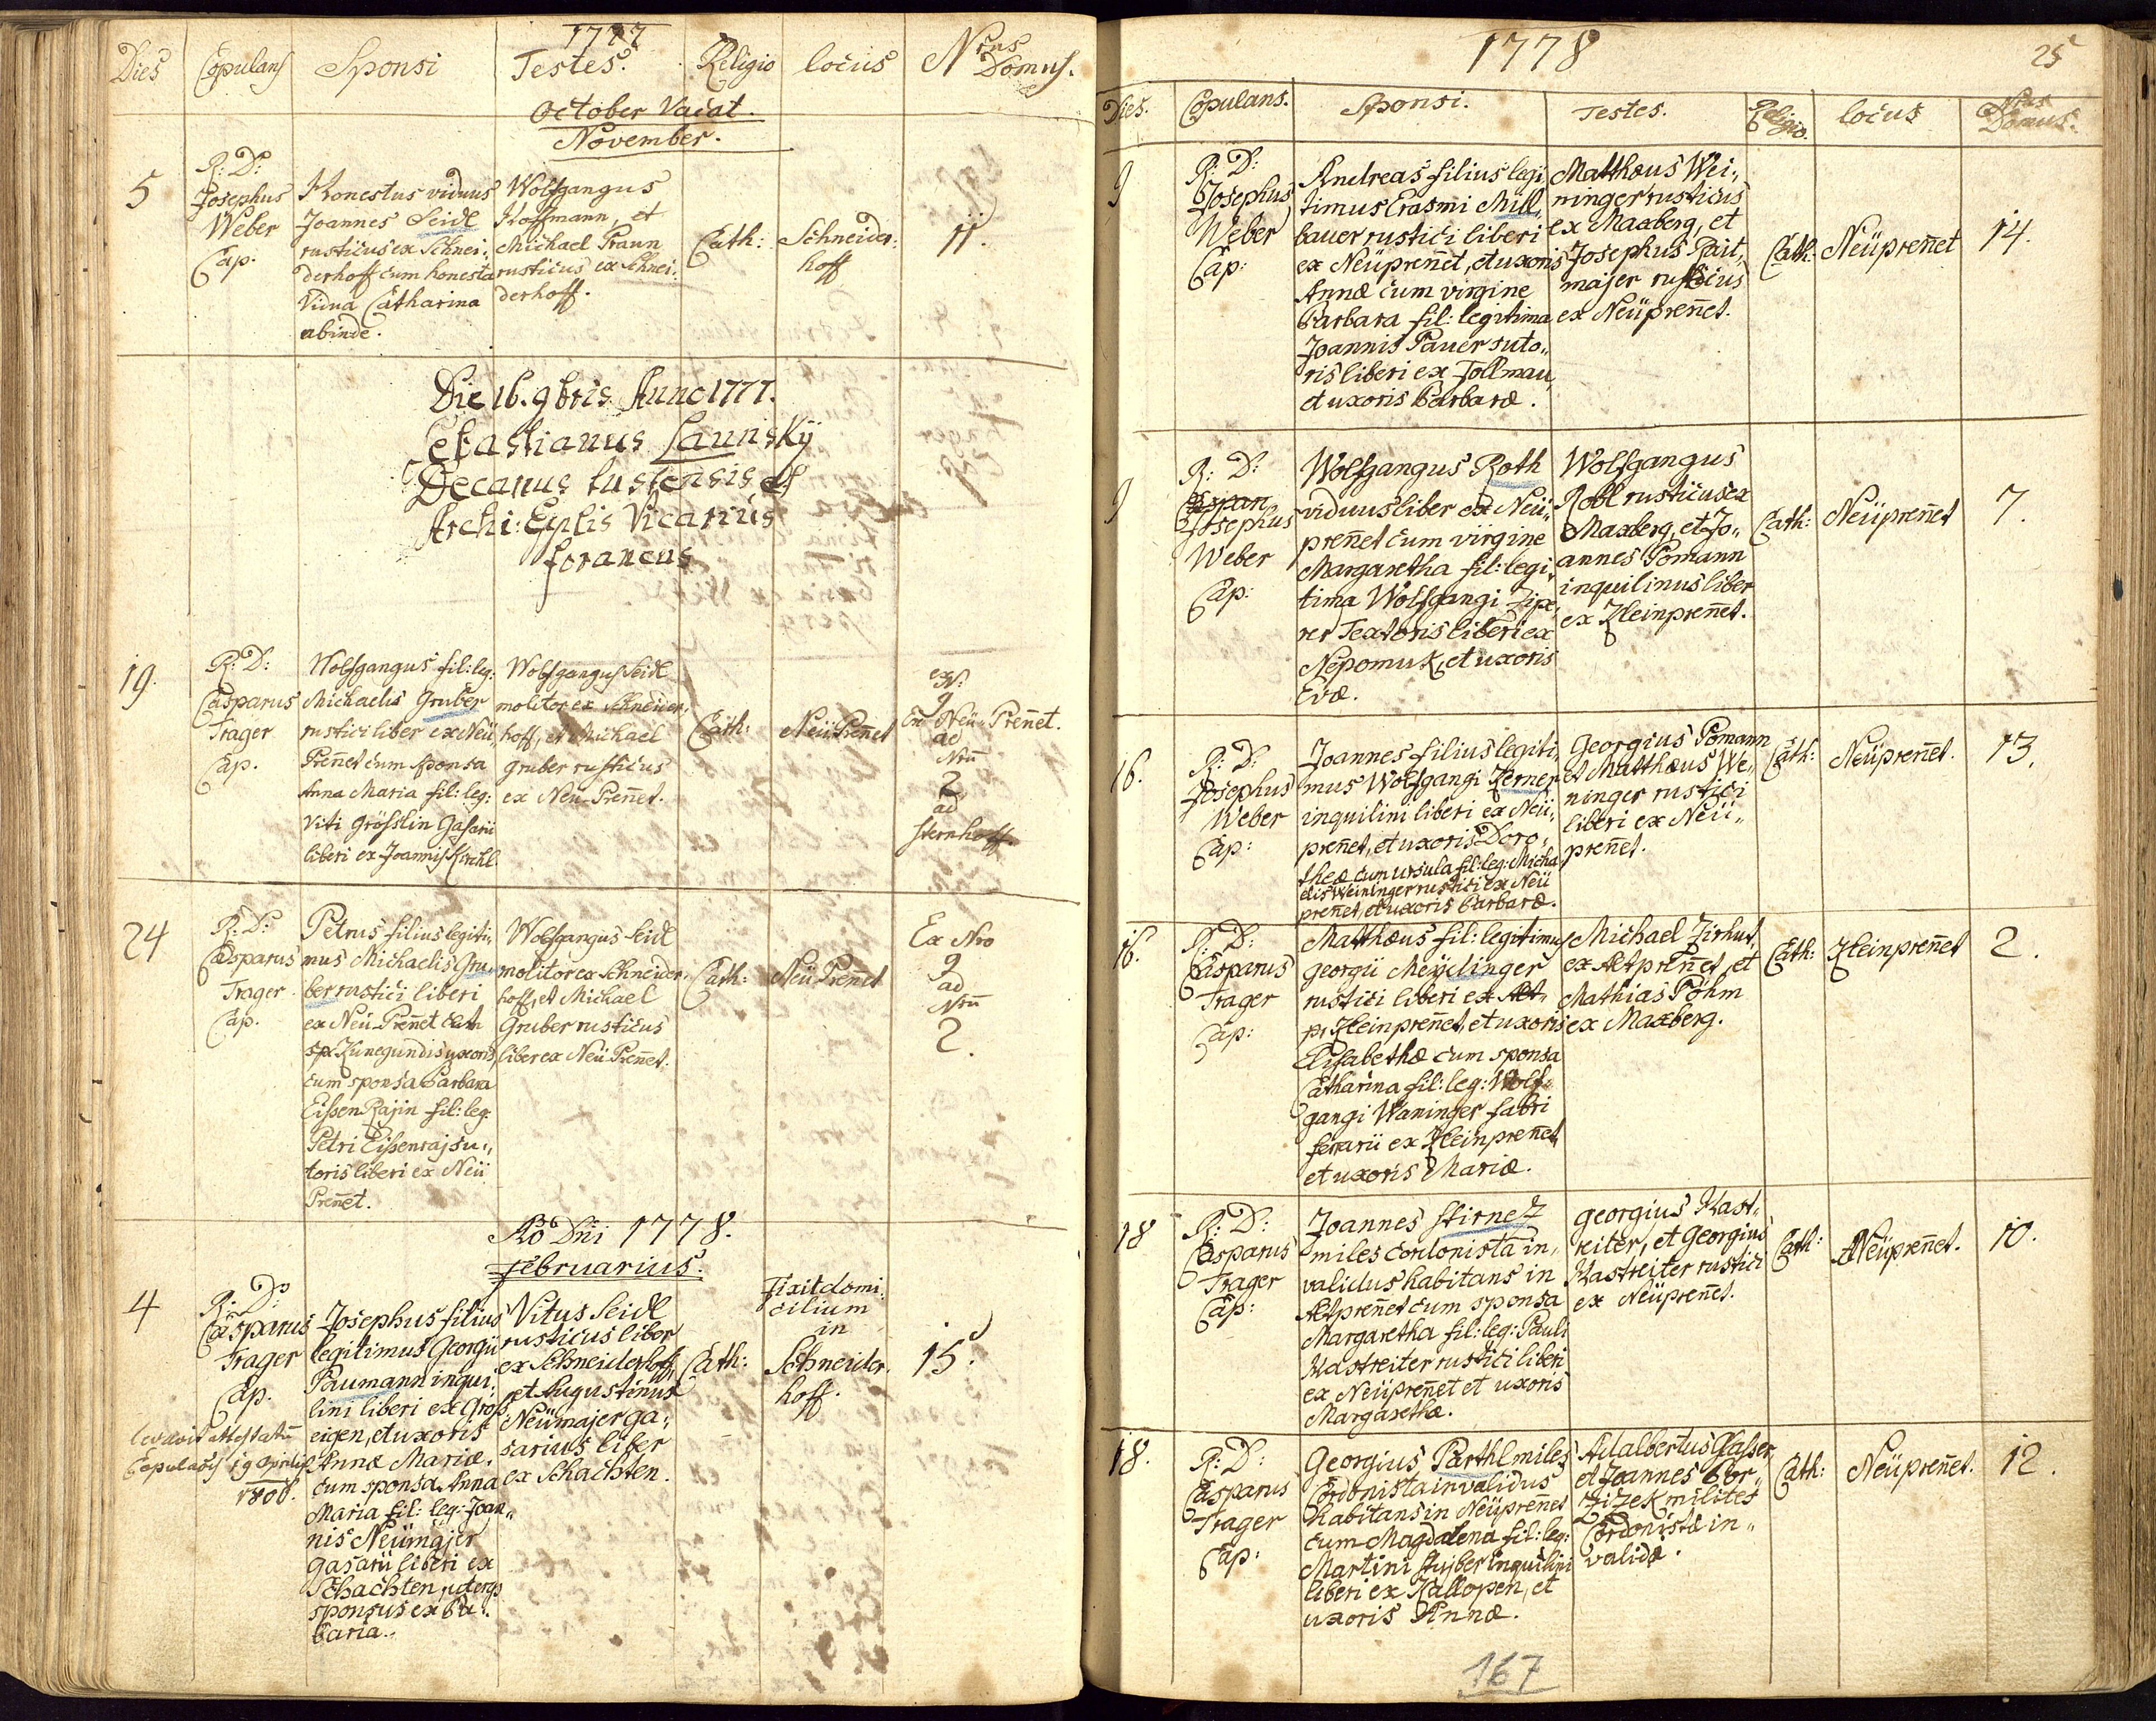 1777
Dies Copulans Sponsi Testes. Religio locus Nrus Domus.
October Vacat.
November.
5
R: D:
Josephus
Weber
Cap.
Honestus viduus
Joannes Seidl
rusticus ex Schnei:
derhoff cum honesta
Vidua Catharina
abinde.
Wolfgangus
Hoffmann, et
Michael Praun
rusticus ex Schnei:
derhoff.
Cath:
Schneider:
hoff
11.
Die 16. 9bris Anno 1777.
Sebastianus Launskÿ
Decanus tustensis et
Archi: Eplis Vicarius
foraneus
19.
R: D:
Casparus
Trager
Cap.
Wolfgangus fil: leg:
Michaelis Gruber
rustici liber ex Neü
Preñet cum sponsa
Anna Maria fil: leg:
Viti Grösslin Gasarii
liberi ex Joannis Kirchl.
Wolfgangus Seidl
molitor ex Schneider:
hoff, et Michael
Gruber rusticus
ex Neu-Preñet.
Cath:
Neü Preñet
ex N:
9
Neü-Preñet.
ad
Nrũ
2
ad
Sternhoff.
24
R: D:
Casparus
Trager
Cap.
Petrus filius legiti,,
mus Michaelis Gru,,
ber rustici liberi
ex Neü-Preñet
Kunegundis uxoris
cum sponsa Barbara
Eissen Rajin fil: leg:
Petri Eissenraj su,,
toris liberi ex Neü
Preñet.
Wolfgangus Seidl
molitor ex Schneider,
hoff, et Michael
Gruber rusticus
liber ex Neü Preñet.
Cath:
Neü Preñet
Ex Nro
9
ad
Nrũ
2.
Ao Dni 1778.
Februarius.
4
R: D:
Casparus
Trager
Cap.
levavit attestatũ
Copulaõis 19 Aprilis
1808.
Josephus filius
legitimus Georgii
Paumann inqui:
lini liberi ex Gross
eigen, et uxoris
Annæ Mariæ.
cum sponsa Anna
Maria fil: leg: Joan,,
nis Neümajer
Gasarii liberi ex
Schachten,
sponsus ex Ba:
varia.
Vitus Seidl
rusticus liber
ex Schneiderhoff
et Augustinus
Neümajer ga,,
sarius liber
ex Schachten.
Cath:
Fixit domi:
cilium
in
Schneider.
hoff.
15.
1778
25
Dies. Copulans. Sponsi. Testes. Religio. locus Nrus Domus.
9
R: D:
Josephus
Weber
Cap:
Andreas filius legi,
timus Erasmi Mill,
bauer rustici liberi
ex Neüpreñet, et uxoris
Annæ cum virgine
Barbara fil: legitima
Joannis Pauer suto,,
ris liberi ex Follmau,
et uxoris Barbaræ.
Matthæus Wei,,
ninger rusticus
ex Maxberg, et
Josephus Pait,
majer rusticus
ex Neüpreñet.
Cath:
Neüpreñet
14.
9
R: D:
Josephus
Weber
Cap:
Wolfgangus Roth
viduus liber ex Neü,,
preñet cum virgine
Margaretha fil: legi,
tima Wolfgangi Zipe,
rer Textoris liberi ex
Nepomuk, et uxoris
Evæ.
Wolfgangus
Robl rusticus ex
Maxberg, et Jo,,
annes Pomann
inquilinus liber
ex Kleinpreñet.
Cath:
Neüpreñet
7.
16.
R: D:
Josephus
Weber
Cap:
Joannes filius legiti,
mus Wolfgangi Zerner
inquilini liberi ex Neü,,
preñet, et uxoris Doro,,
theæ cum Ursula fil: leg: Micha
elis Weininger rustici ex Neü
preñet, et uxoris Barbaræ.
Georgius Pomann
et Matthæus We,,
ninger rustici
liberi ex Neü,,
preñet.
Cath:
Neüpreñet.
13.
16.
R: D:
Casparus
Trager
Cap:
Matthæus fil: legitimus
Georgii Meÿdlinger
rustici liberi ex Alt,,
pr Kleinpreñet, et uxoris
Elisabethæ cum sponsa
Catharina fil: leg: Wolf,,
gangi Waninger fabri
ferrarii ex Kleinpreñet
et uxoris Mariæ.
Michael Zirhut,
ex Altpreñet, et
Mathias Pöhm
ex Maxberg.
Cath:
Kleinpreñet
2.
18
R: D:
Casparus
Trager
Cap:
Joannes Stirnetz
miles cordonista in,,
validus habitans in
Altpreñet cum sponsa
Margaretha fil: leg: Pauli
Kastreiter rustici liberi
ex Neüpreñet et uxoris
Margarethæ.
Georgius Kast,,
reiter, et Georgius
Kastreiter rustici
ex Neüpreñet.
Cath:
Neüpreñet.
10.
18.
R: D:
Casparus
Trager
Cap:
Georgius Parthl miles
Cordonista invalidus
habitans in Neüprenet
cum Magdalena fil: leg:
Martini Stuiber inquilini
liberi ex Hallopen, et
uxoris Annæ.
Adalbertus Glaser
et Joannes Bor,,
zizek milites
Cordonistæ in,,
validæ.
Cath:
Neüpreñet.
12.
167